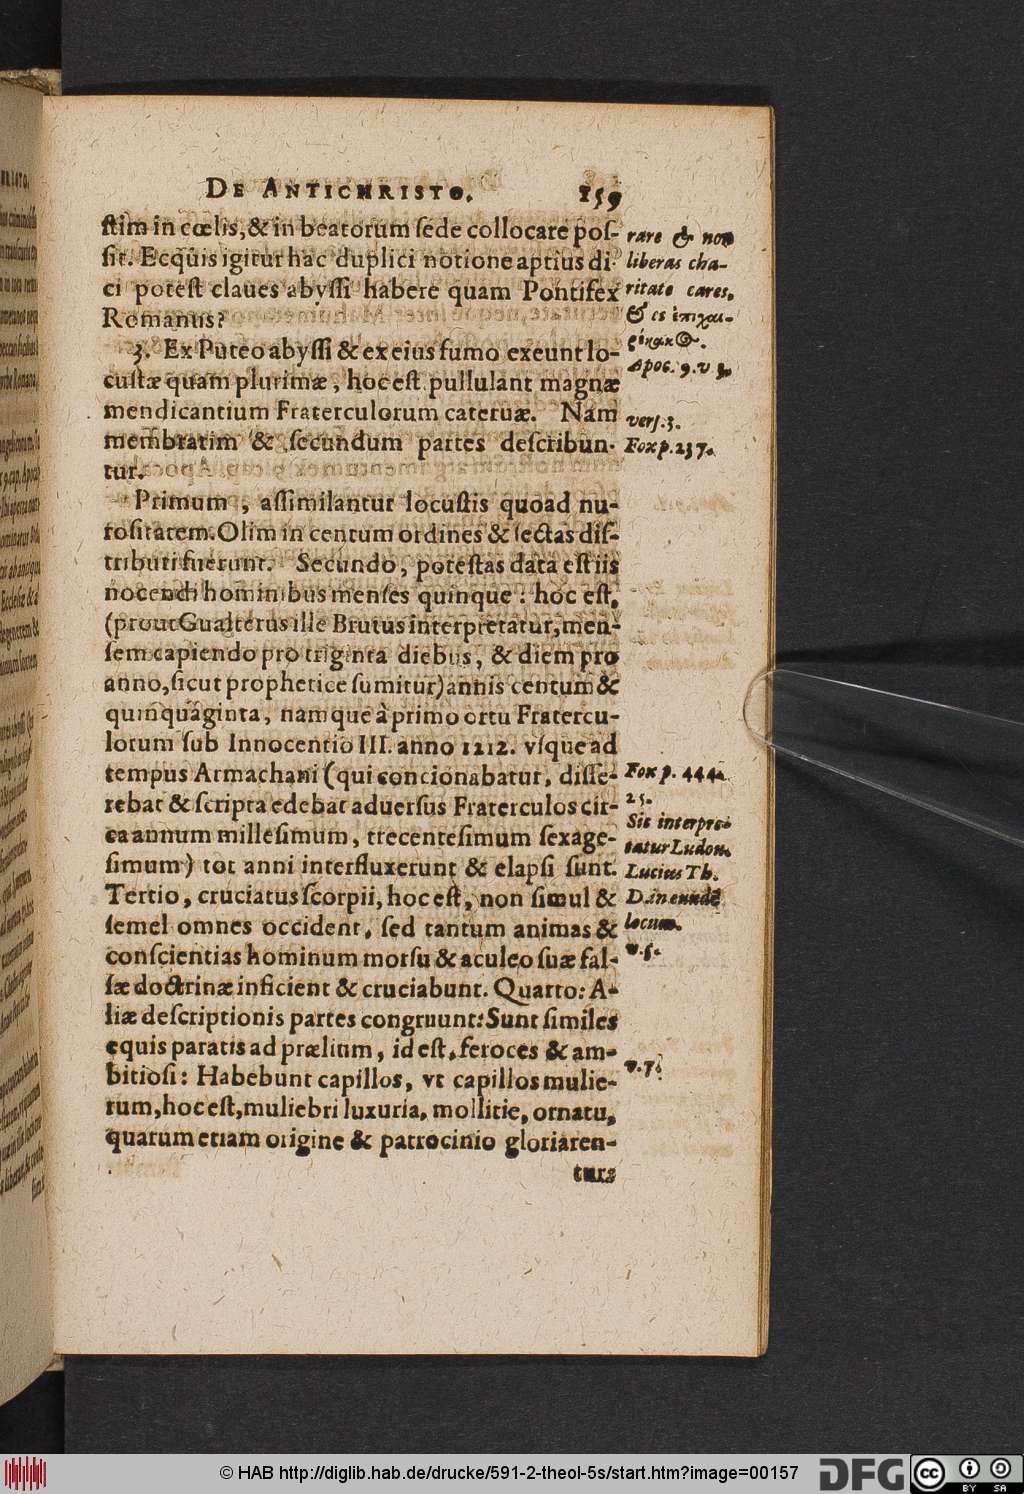 DE ANTICHRISTO. 159
ſtim in cœlis, & in beatorum ſede collocare poſ-
ſit. Ecquis igitur hac duplici notione aptius di-
ci poteſt claues abyſſi habere quam Pontifex
Romanus?
3. Ex Puteo abyſſi & ex eius fumo exeunt lo-
cuſtæ quam plurimæ, hoc eſt pullulant magnæ
mendicantium Fraterculorum cateruæ. Nam
membratim & ſecundum partes deſcribun-
tur.
Primum, aſſimilantur locuſtis quoad nu-
roſitatem. Olim in centum ordines & ſectas diſ-
tributi fuerunt. Secundo, poteſtas data eſt iis
nocendi hominibus menſes quinque: hoc eſt,
(prout Gualterus ille Brutus interpretatur, men-
ſem capiendo pro triginta diebus, & diem pro
anno, ſicut prophetice ſumitur) annis centum &
quinquaginta, namque à primo ortu Fratercu-
lorum ſub Innocentio III. anno 1212. vſque ad
tempus Armachani (qui concionabatur, diſſe-
rebat & ſcripta edebat aduerſus Fraterculos cir-
ca annum milleſimum, trecenteſimum ſexage-
ſimum) tot anni interfluxerunt & elapſi ſunt.
Tertio, cruciatus ſcorpii, hoc eſt, non ſimul &
ſemel omnes occident, ſed tantum animas &
conſcientias hominum morſu & aculeo ſuæ fal-
ſæ doctrinæ inficient & cruciabunt. Quarto: A-
liæ deſcriptionis partes congruunt: Sunt ſimiles
equis paratis ad prælium, id eſt, feroces & am-
bitioſi: Habebunt capillos, vt capillos mulie-
rum, hoc eſt, muliebri luxuria, mollitie, ornatu,
quarum etiam origine & patrocinio gloriaren-
tur:
rare & non
liberas cha-
ritate cares,
& es ἐπιχαι-
ρέκακ⊙.
Apoc. 9. v 3.
verſ. 3.
Fox p. 237.
Fox p. 444.
25.
Sic interpre-
tatur Ludou.
Lucius Th.
D. in eundē
locum.
v. 5.
v. 7.
© HAB http://diglib.hab.de/drucke/591-2-theol-5s/start.htm?image=00157
DFG
CC
BY SA